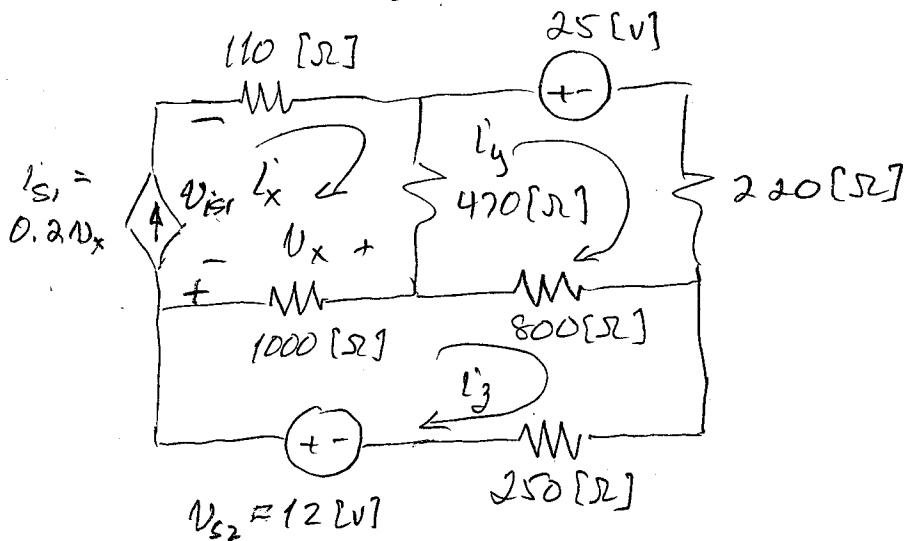 25 [V]
110 [Ω]
+ -
-
i_S1 =
0.2 v_x
v_iS1
i_x
i_y
470 [Ω]
220 [Ω]
- v_x +
+
1000 [Ω]
800 [Ω]
i_z
+ -
250 [Ω]
v_S2 = 12 [V]